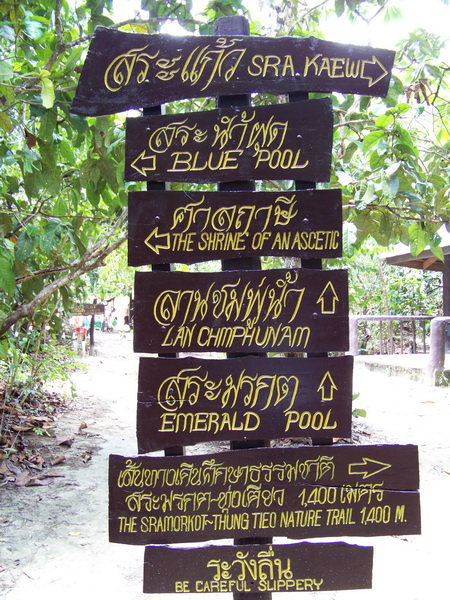 สระแก้ว SRA. KAEW
สระน้ำผุด
BLUE POOL
ศาลฤาษี
THE SHRINE OF AN ASCETIC
ลานชมพู่น้ำ
LAN CHIMPHUNAM
สระมรกต
EMERALD POOL
เส้นทางเดินศึกษาธรรมชาติ
สระมรกต-ทุ่งเตียว 1,400 เมตร
THE SRAMORKOT-THUNG TIEO NATURE TRAIL 1,400 M.
ระวังลื่น
BE CAREFUL SLIPPERY